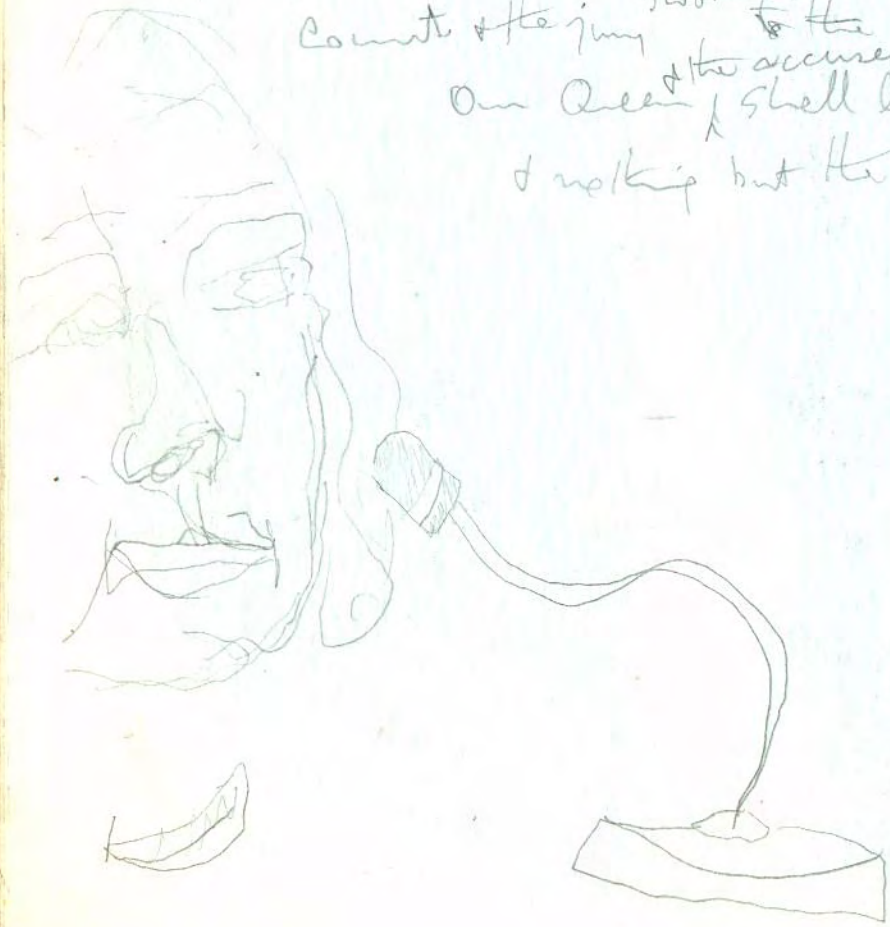 Court & the jury to the
& the accuse
Our Queen shall
& nothing but the